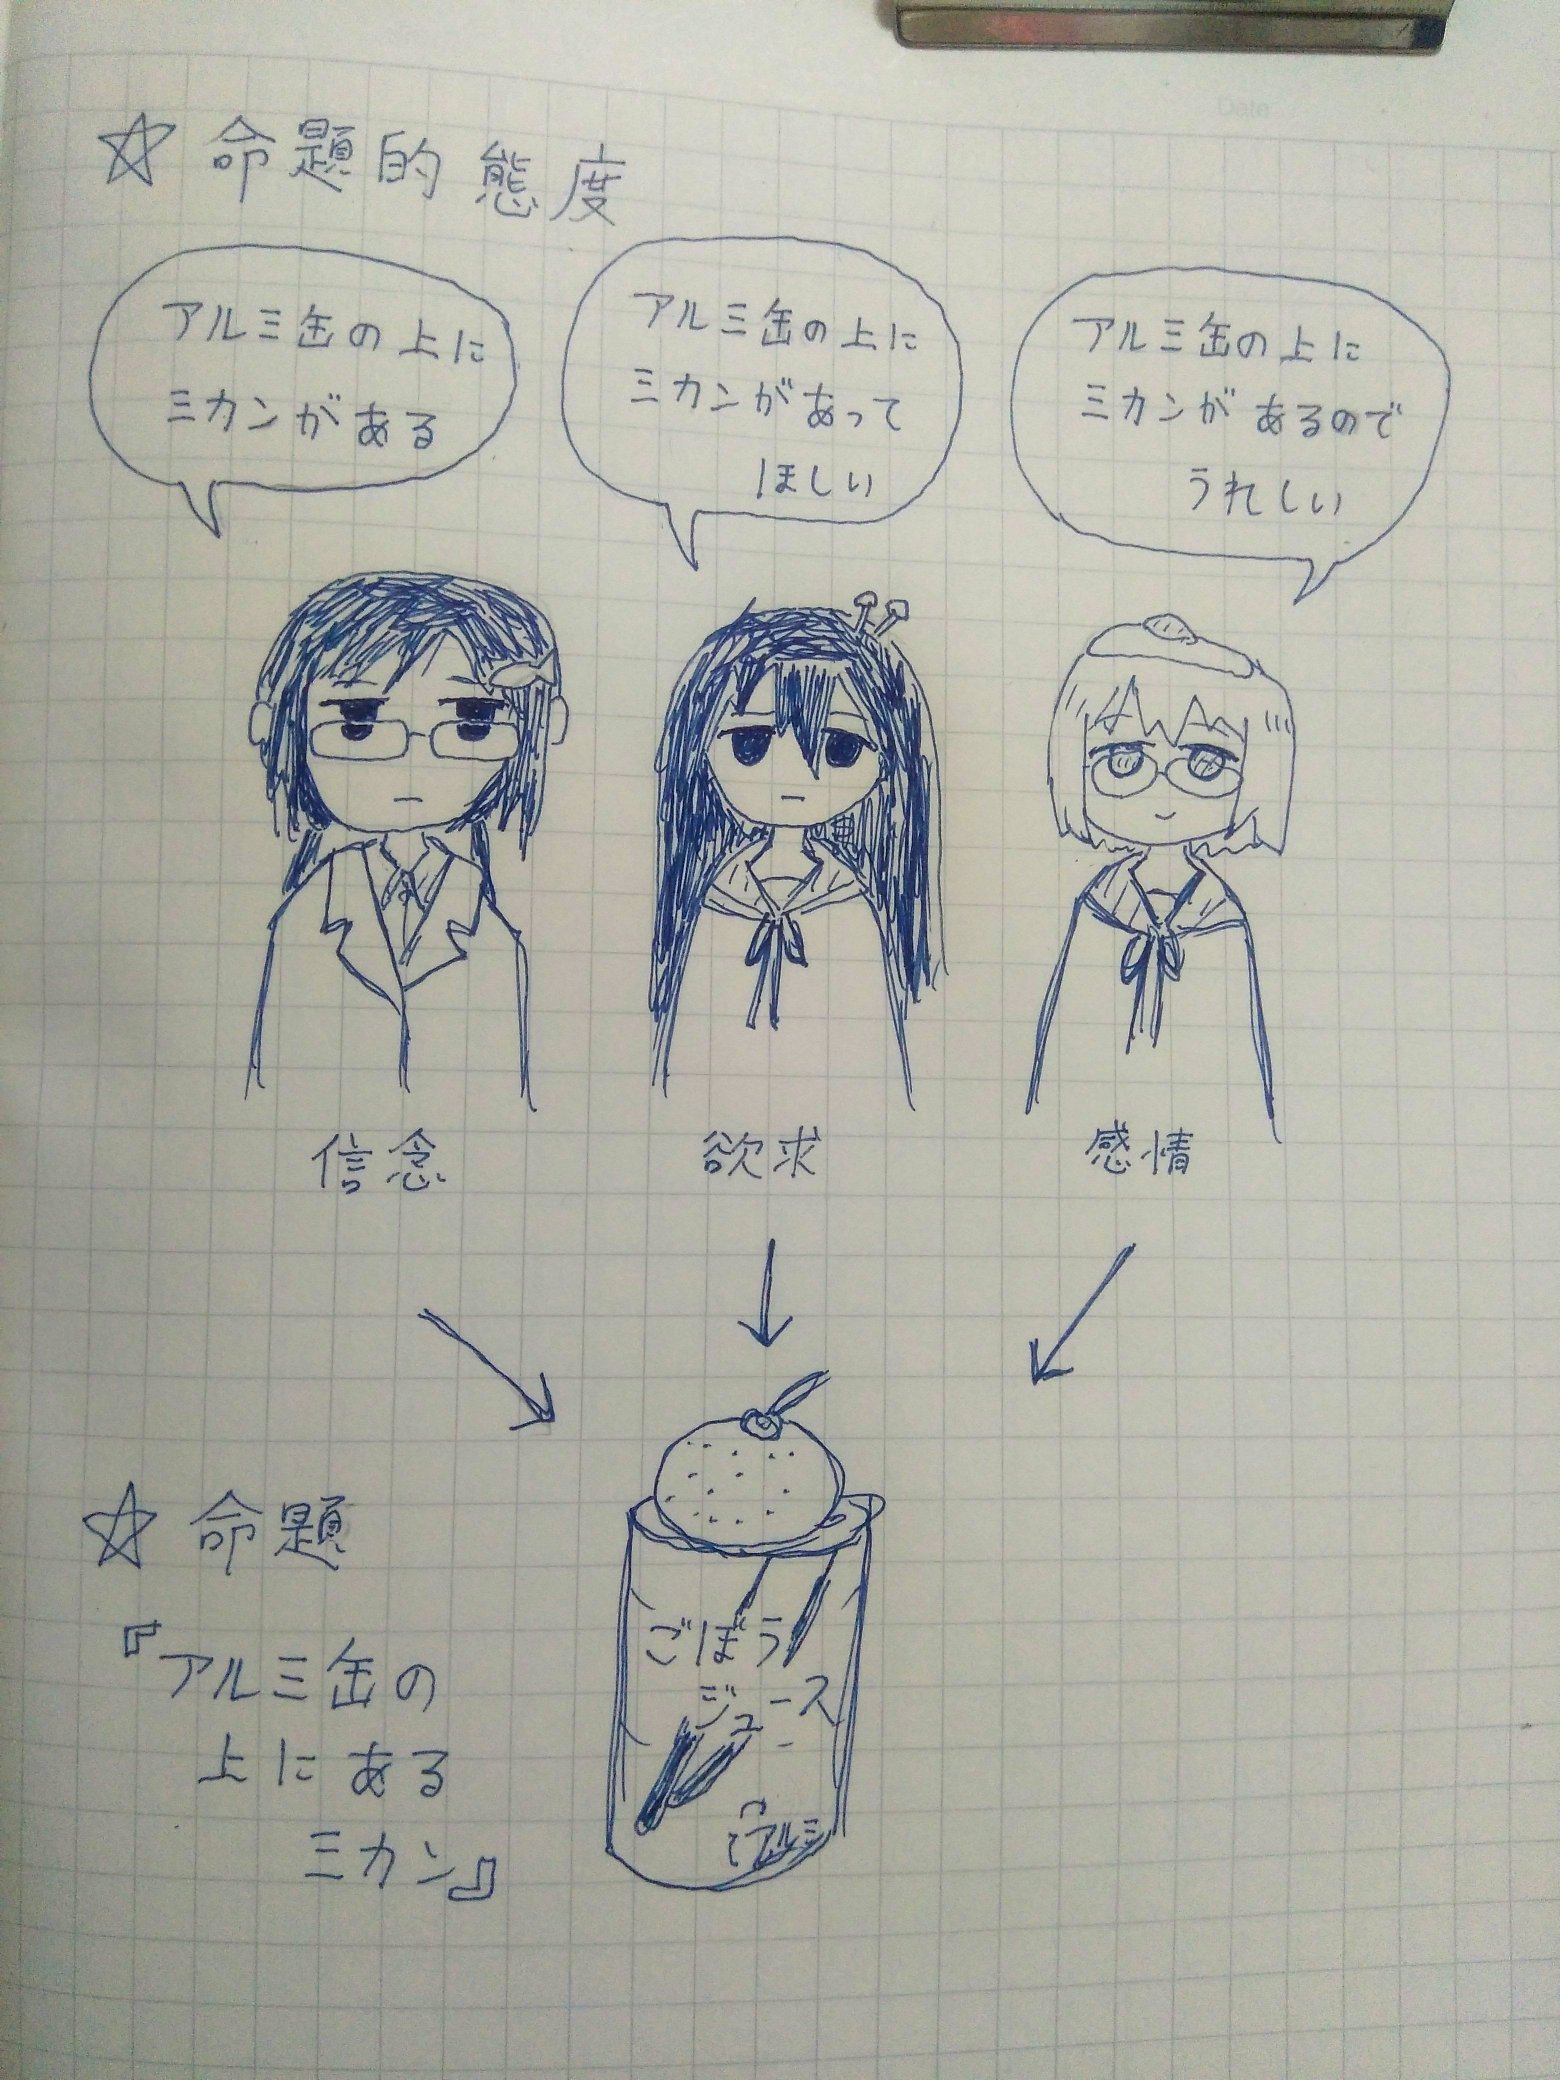 ☆ 命題的態度
アルミ缶の上に
ミカンがある
アルミ缶の上に
ミカンがあって
ほしい
アルミ缶の上に
ミカンがあるので
うれしい
信念
欲求
感情
☆ 命題
『アルミ缶の
上にある
ミカン』
ごぼう
ジュース
アルミ
Date